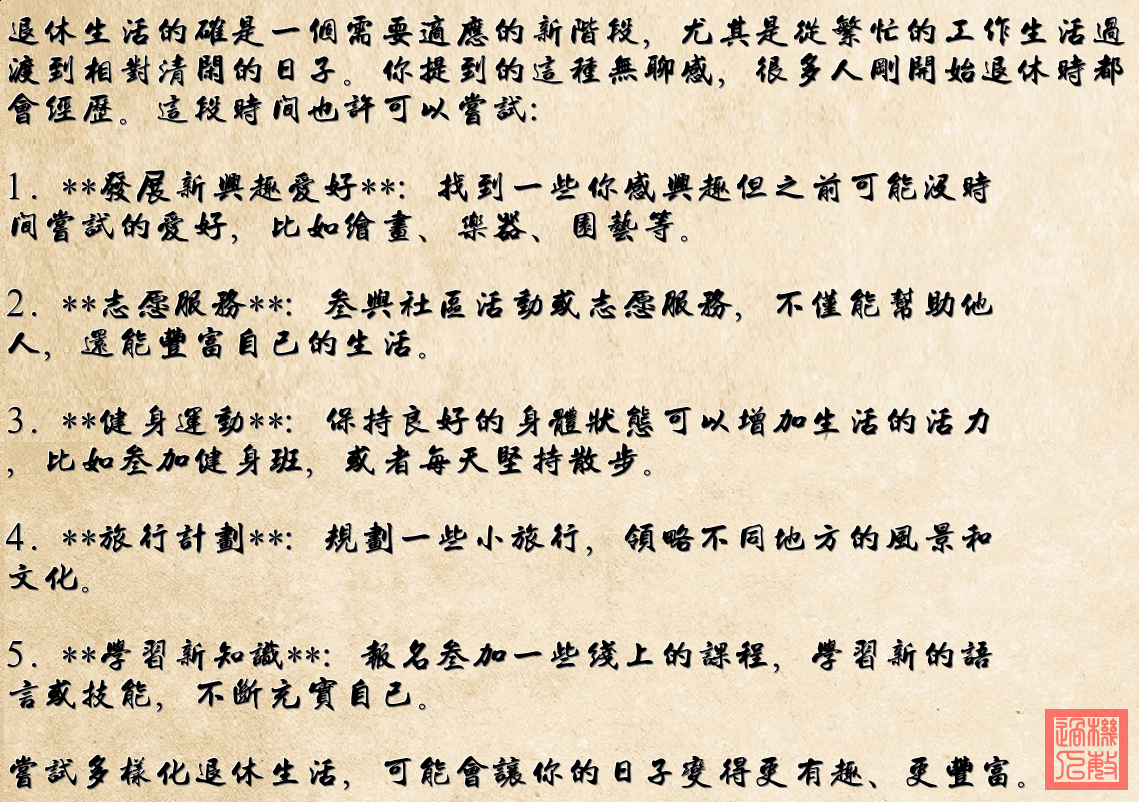 退休生活的確是一個需要適應的新階段，尤其是從繁忙的工作生活過
渡到相對清閒的日子。你提到的這種無聊感，很多人剛開始退休時都
會經歷。這段時間也許可以嘗試：
1. **發展新興趣愛好**：找到一些你感興趣但之前可能沒時
間嘗試的愛好，比如繪畫、樂器、園藝等。
2. **志愿服務**：參與社區活動或志愿服務，不僅能幫助他
人，還能豐富自己的生活。
3. **健身運動**：保持良好的身體狀態可以增加生活的活力
，比如參加健身班，或者每天堅持散步。
4. **旅行計劃**：規劃一些小旅行，領略不同地方的風景和
文化。
5. **學習新知識**：報名參加一些綫上的課程，學習新的語
言或技能，不斷充實自己。
嘗試多樣化退休生活，可能會讓你的日子變得更有趣、更豐富。